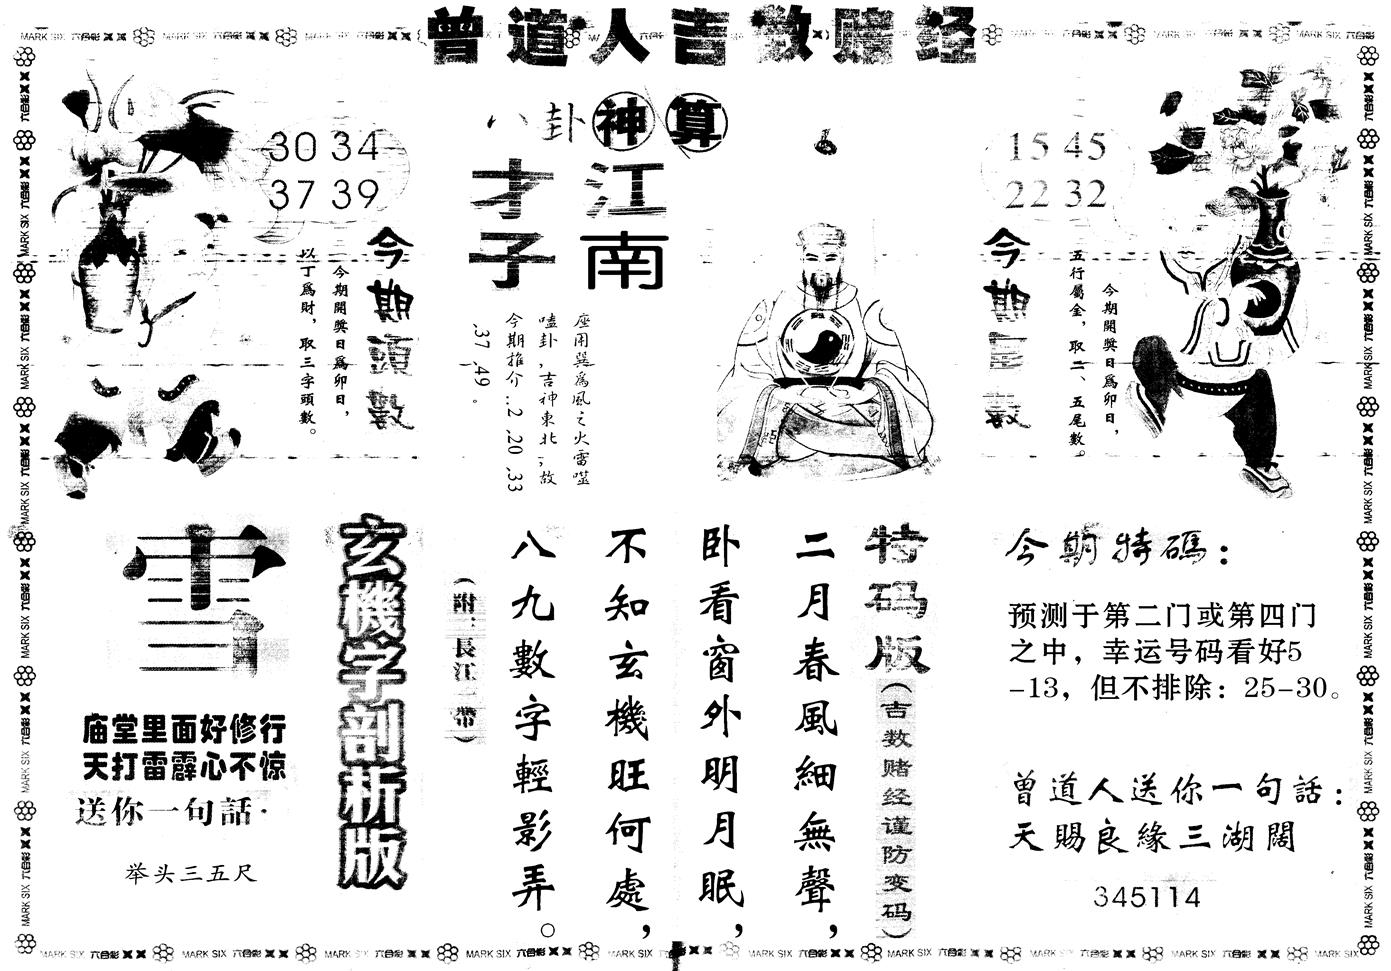 曾道人吉数赌经
八卦神算
江南
才子
座用巽為風之火雷噬
嗑卦,吉神東北,故
今期推介..2 .20 .33
.37 .49 。
30 34
37 39
今期頭數
今期開獎日爲卯日,
以丁爲財,取三字頭數。
15 45
22 32
今期尾數
今期開獎日爲卯日,
五行屬金,取二、五尾數。
玄機字剖析版
庙堂里面好修行
天打雷霹心不惊
送你一句話·
举头三五尺
特码版
(吉数赌经谨防变码)
二月春風細無聲,
卧看窗外明月眠,
不知玄機旺何處,
八九數字輕影弄。
(附:長江一帶)
今期特碼:
预测于第二门或第四门
之中，幸运号码看好5
-13，但不排除：25-30。
曾道人送你一句話:
天賜良緣三湖闊
345114
MARK SIX 六合彩